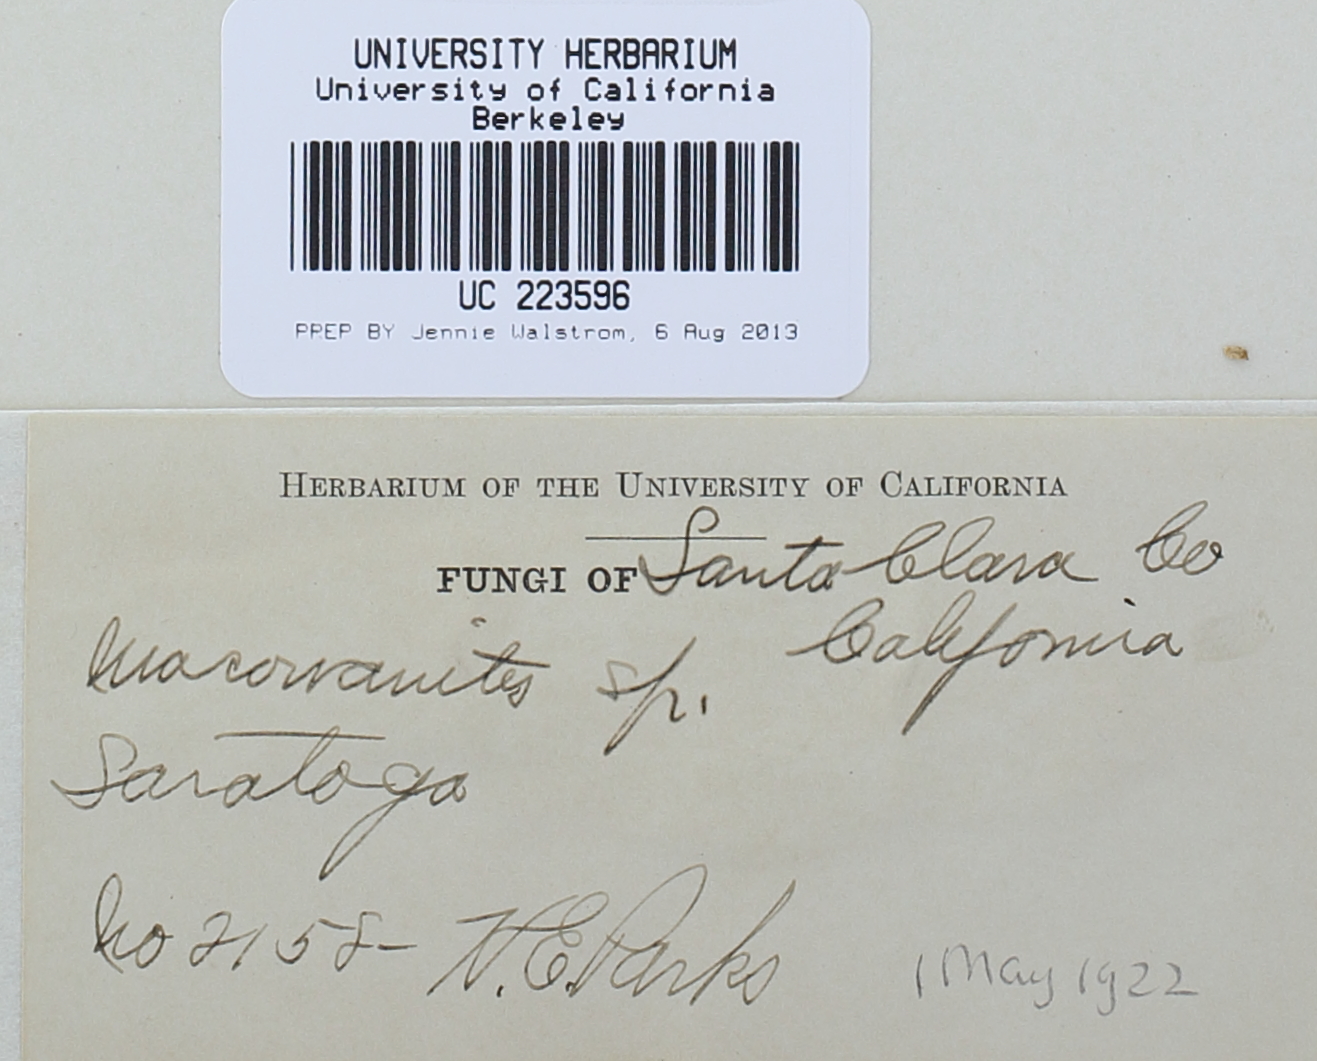 UNIVERSITY HERBARIUM
University of California
Berkeley
UC 223596
PREP BY Jennie Walstrom, 6 Aug 2013
HERBARIUM OF THE UNIVERSITY OF CALIFORNIA
FUNGI OF Santa Clara Co
California
Macowanites sp.
Saratoga
No 2158- H.E. Parks
1 May 1922